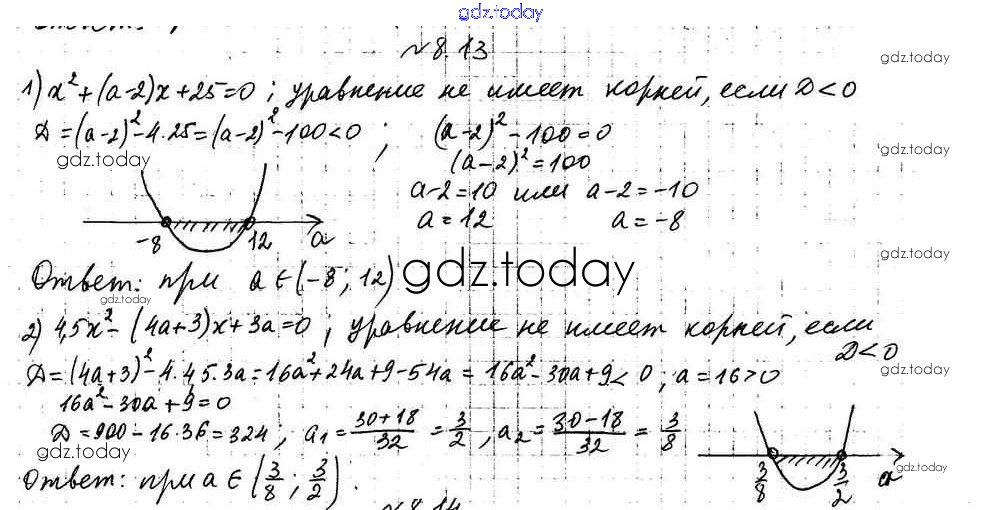 gdz.today
№8.13
gdz.today
1) x² + (a-2)x + 25 = 0 ; уравнение не имеет корней, если D < 0
D = (a-2)² - 4·25 = (a-2)² - 100 < 0 ; (a-2)² - 100 = 0
gdz.today (a-2)² = 100 gdz.today
a-2 = 10 или a-2 = -10
a = 12 a = -8
-8 12 a
gdz.today
Ответ: при a ∈ (-8; 12) gdz.today
gdz.today
2) 4,5x² - (4a+3)x + 3a = 0 ; уравнение не имеет корней, если
D < 0
D = (4a+3)² - 4·4,5·3a = 16a² + 24a + 9 - 54a = 16a² - 30a + 9 < 0 ; a = 16 > 0
gdz.today
16a² - 30a + 9 = 0
D = 900 - 16·36 = 324 ; a₁ = (30+18)/32 = 3/2 , a₂ = (30-18)/32 = 3/8
gdz.today
3/8 3/2 a gdz.today
Ответ: при a ∈ (3/8 ; 3/2).
№8.14